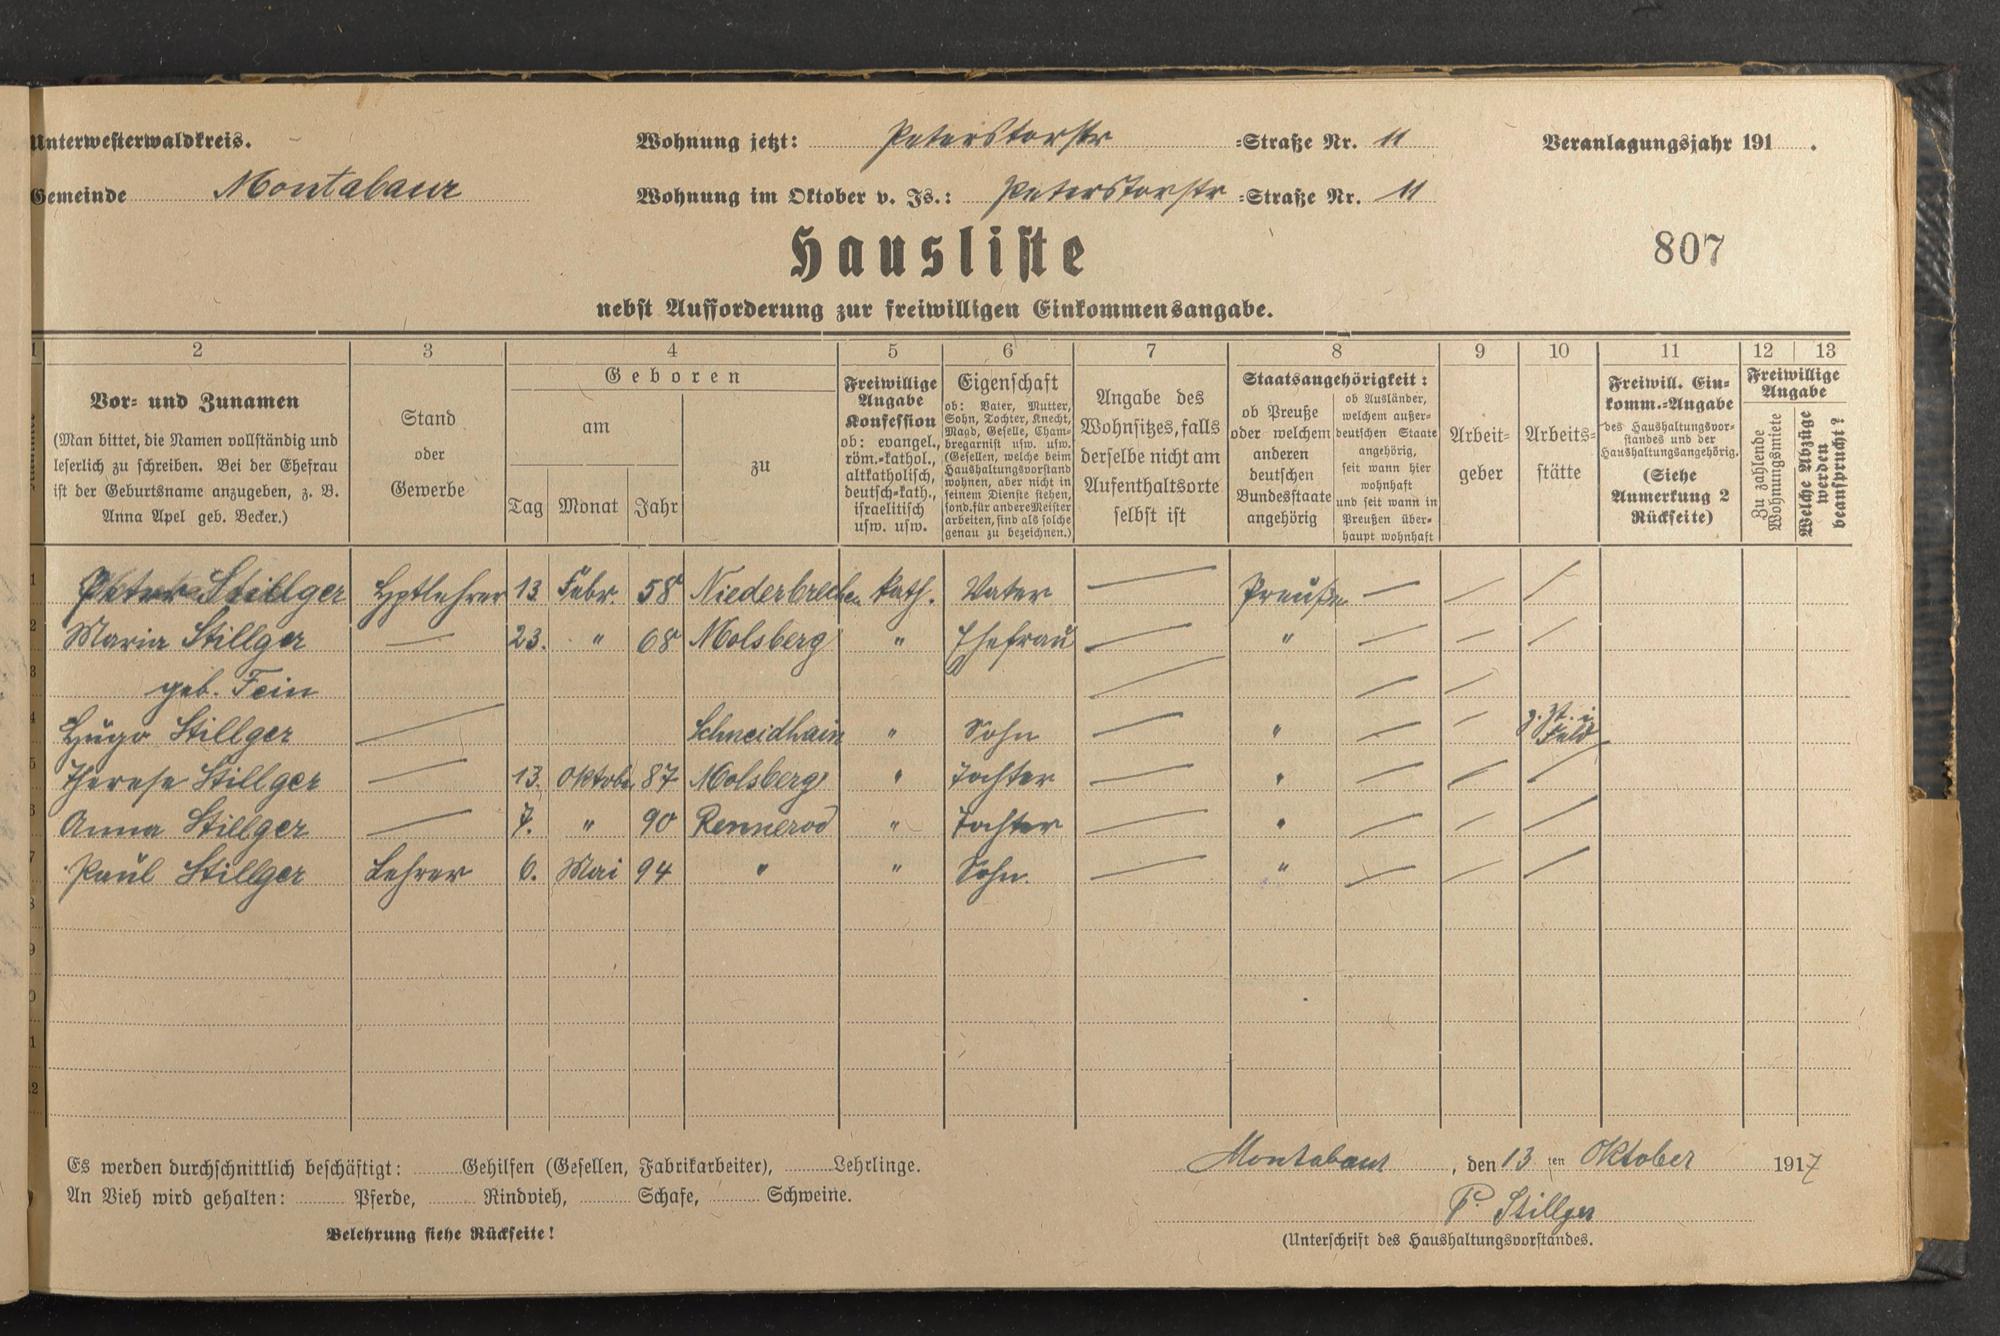 Unterwesterwaldkreis.
Wohnung jetzt: Peterstorstr =Straße Nr. 11
Veranlagungsjahr 191 .
Gemeinde Montabaur
Wohnung im Oktober v. Js.: Peterstorstr =Straße Nr. 11
Hausliste
807
nebst Aufforderung zur freiwilligen Einkommensangabe.
1 2 3 4 5 6 7 8 9 10 11 12 13
Vor= und Zunamen
(Man bittet, die Namen vollständig und
leserlich zu schreiben. Bei der Ehefrau
ist der Geburtsname anzugeben, z. B.
Anna Apel geb. Becker.)
Stand
oder
Gewerbe
Geboren
am
Tag Monat Jahr
zu
Freiwillige
Angabe
Konfession
ob: evangel.,
röm.=kathol.,
altkatholisch,
deutsch=kath.,
israelitisch
usw. usw.
Eigenschaft
ob: Vater, Mutter,
Sohn, Tochter, Knecht,
Magd, Geselle, Cham=
bregarnist usw. usw.
(Gesellen, welche beim
Haushaltungsvorstand
wohnen, aber nicht in
seinem Dienste stehen,
sond. für andere Meister
arbeiten, sind als solche
genau zu bezeichnen.)
Angabe des
Wohnsitzes, falls
derselbe nicht am
Aufenthaltsorte
selbst ist
Staatsangehörigkeit:
ob Preuße
oder welchem
anderen
deutschen
Bundesstaate
angehörig
ob Ausländer,
welchem außer=
deutschen Staate
angehörig,
seit wann hier
wohnhaft
und seit wann in
Preußen über=
haupt wohnhaft
Arbeit=
geber
Arbeits=
stätte
Freiwill. Ein=
komm.=Angabe
des Haushaltungsvor=
standes und der
Haushaltungsangehörig.
(Siehe
Anmerkung 2
Rückseite)
Freiwillige
Angabe
Zu zahlende
Wohnungsmiete
Welche Abzüge
werden
beansprucht?
1 Peter Stillger Hptlehrer 13 Febr. 58 Niederbrechen kath. Vater — Preußen — — —
2 Maria Stillger — 23. " 68 Molsberg " Ehefrau — " — — —
3 geb. Fein — — —
4 Hugo Stillger — Schneidhain " Sohn — " — — z. Zt. i. Feld
5 Therese Stillger — 13. Oktober 87 Molsberg " Tochter — " — — —
6 Anna Stillger — 7. " 90 Rennerod " Tochter — " — — —
7 Paul Stillger Lehrer 6. Mai 94 " " Sohn. — " — — —
8
9
0
1
2
Es werden durchschnittlich beschäftigt: Gehilfen (Gesellen, Fabrikarbeiter), Lehrlinge.
Montabaur, den 13 ten Oktober 1917
An Vieh wird gehalten: Pferde, Rindvieh, Schafe, Schweine.
P. Stillger
Belehrung siehe Rückseite!
(Unterschrift des Haushaltungsvorstandes.